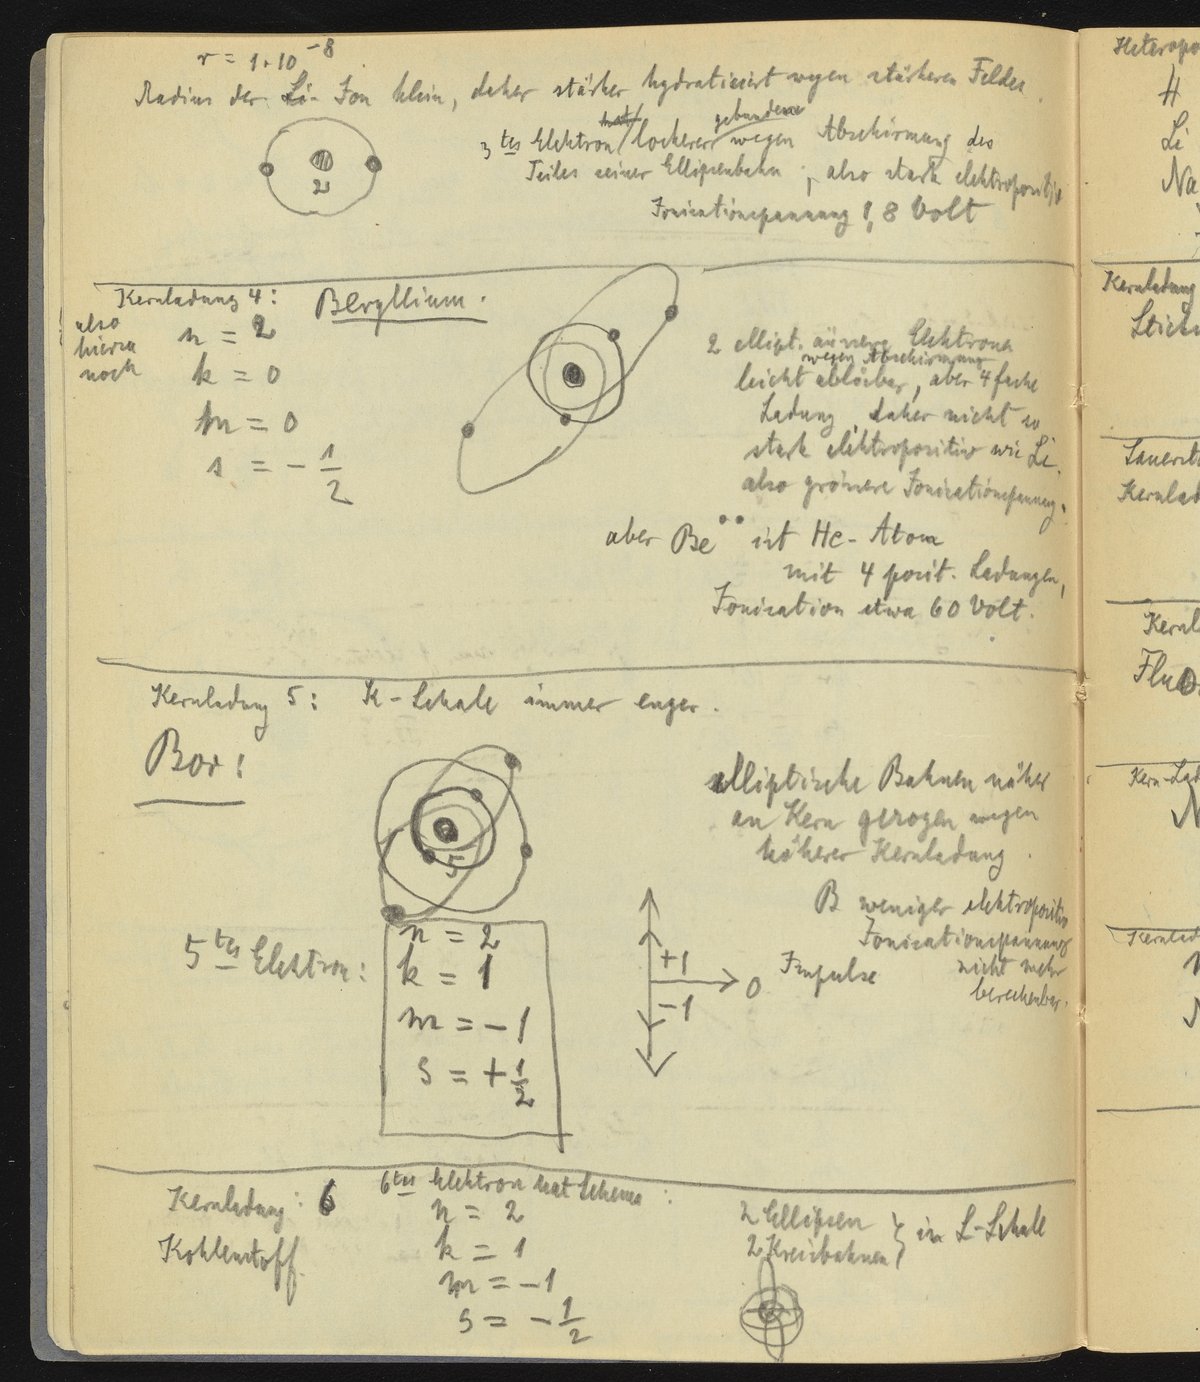 r = 1·10⁻⁸
Radius der Li- Ion klein, daher stärker hydratisiert wegen stärkeren Feldes.
3tes Elektron lockerer gebunden wegen Abschirmung des
Teiles seiner Ellipsenbahn; also stark elektropositiv
Ionisationspannung 1,8 Volt
Kernladung 4: Beryllium.
also
hierzu
noch
n = 2
k = 0
m = 0
s = - 1/2
2 ellipt. äussere Elektronen
wegen Abschirmung
leicht ablösbar, aber 4 fache
Ladung, daher nicht so
stark elektropositiv wie Li.
also grössere Ionisationspannung.
aber Be¨ ist He- Atom
mit 4 posit. Ladungen,
Ionisation etwa 60 Volt.
Kernladung 5: K-Schale immer enger.
Bor:
5
elliptische Bahnen näher
an Kern gezogen wegen
höherer Kernladung.
B weniger elektropositiv
Ionisationspannung
nicht mehr
berechenbar.
5tes Elektron:
n = 2
k = 1
m = -1
s = + 1/2
+1
0
-1
Impulse
Kernladung: 6
Kohlenstoff.
6tes Elektron hat Schema:
n = 2
k = 1
m = -1
s = - 1/2
2 Ellipsen
2 Kreisbahnen } in L-Schale
H
Li
Na
Kernladung
Kernlad
Kernl
Fluo
Kern-Lad
N
Kernlad